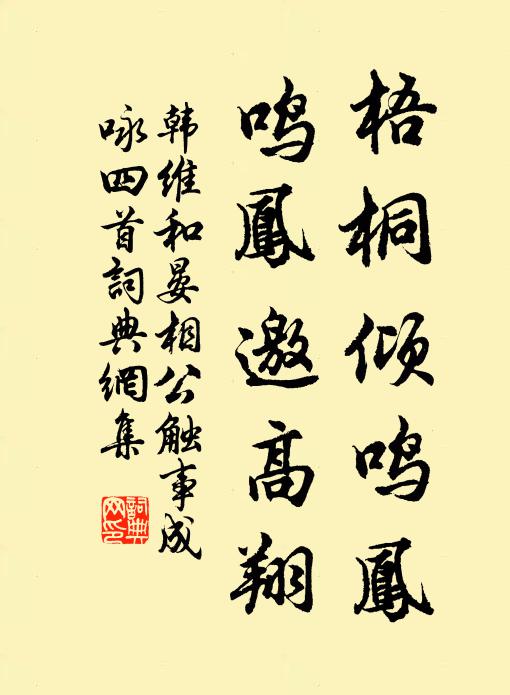 梧桐倾鸣鳳
鸣鳳邀高翔
韩維和晏相公触事成
咏四首詞典網集
詞典网印